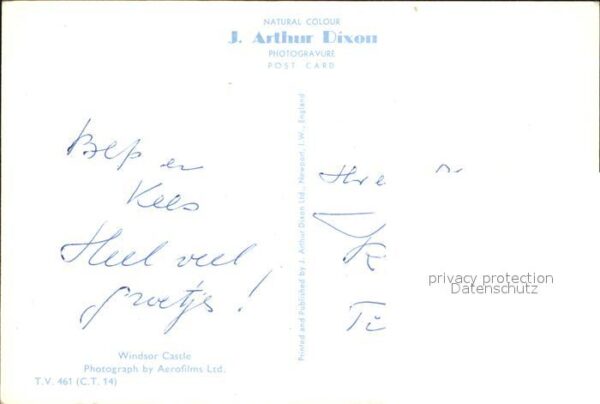 NATURAL COLOUR
J. Arthur Dixon
PHOTOGRAVURE
POST CARD
Bep en
Kees
Heel veel
groetjes!
Printed and Published by J. Arthur Dixon Ltd., Newport, I.W., England
K
Ti
privacy protection
Datenschutz
Windsor Castle
Photograph by Aerofilms Ltd.
T.V. 461 (C.T. 14)